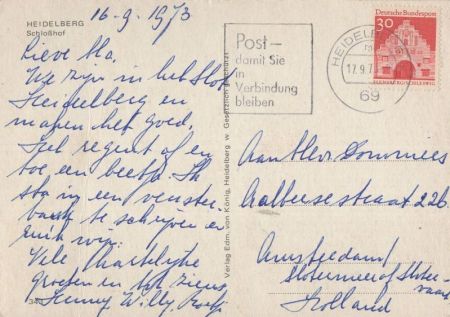 HEIDELBERG
Schloßhof
16-9-1973
Lieve Ma,
We zijn in het Slot
Heidelberg en
maken het goed,
Het regent af en
toe een beetje. Ik
sta in een venster-
bank te schrijven en
Vele Hartelijke
groeten en tot ziens
Henny, Willy,
Verlag Edm. von König, Heidelberg
Gesetzlich geschützt
Post –
damit Sie
in
Verbindung
bleiben
HEIDELBERG
17.9.73
69
Deutsche Bundespost
30
Aan Mevr Dommers
Aalbersestraat 226
Amsterdam
Slotermeer
Holland